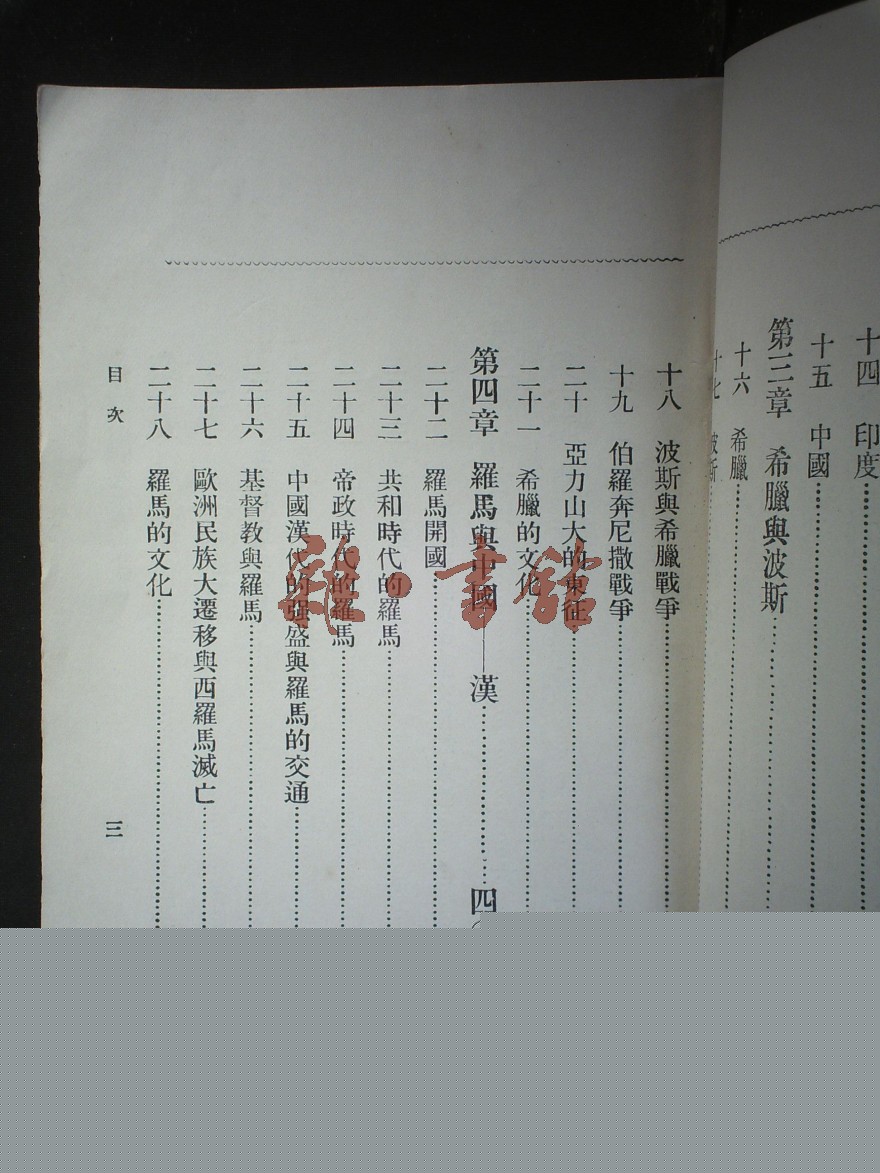 十四 印度
十五 中國
第三章 希臘與波斯
十六 希臘
十七 波斯
十八 波斯與希臘戰爭
十九 伯羅奔尼撒戰爭
二十 亞力山大的東征
二十一 希臘的文化
第四章 羅馬與中國——漢 四
二十二 羅馬開國
二十三 共和時代的羅馬
二十四 帝政時代的羅馬
二十五 中國漢代的强盛與羅馬的交通
二十六 基督教與羅馬
二十七 歐洲民族大遷移與西羅馬滅亡
二十八 羅馬的文化
目次 三
雜·書館